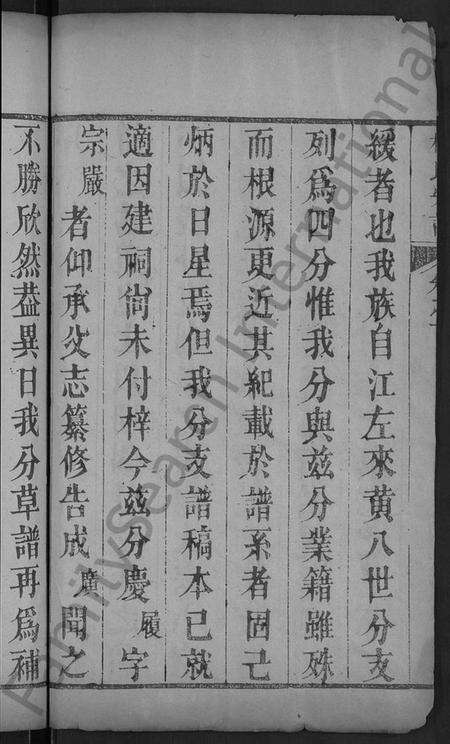 緩者也我族自江左來黄八世分支
列爲四分惟我分與兹分業籍雖殊
而根源更近其紀載於譜系者固已
炳於日星焉但我分支譜稿本已就
適因建祠尙未付梓今兹分慶履字
宗嚴者仰承父志纂修告成廣聞之
不勝欣然葢異日我分草譜再爲補
FamilySearch International